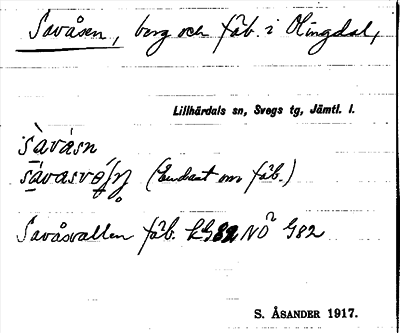 Savåsen, berg och fäb. i Olingdal,
Lillhärdals sn, Svegs tg, Jämtl. l.
sàvásn
(Endast om fäb.)
Savåsvallen fäb. NÖ G82
S. ÅSANDER 1917.